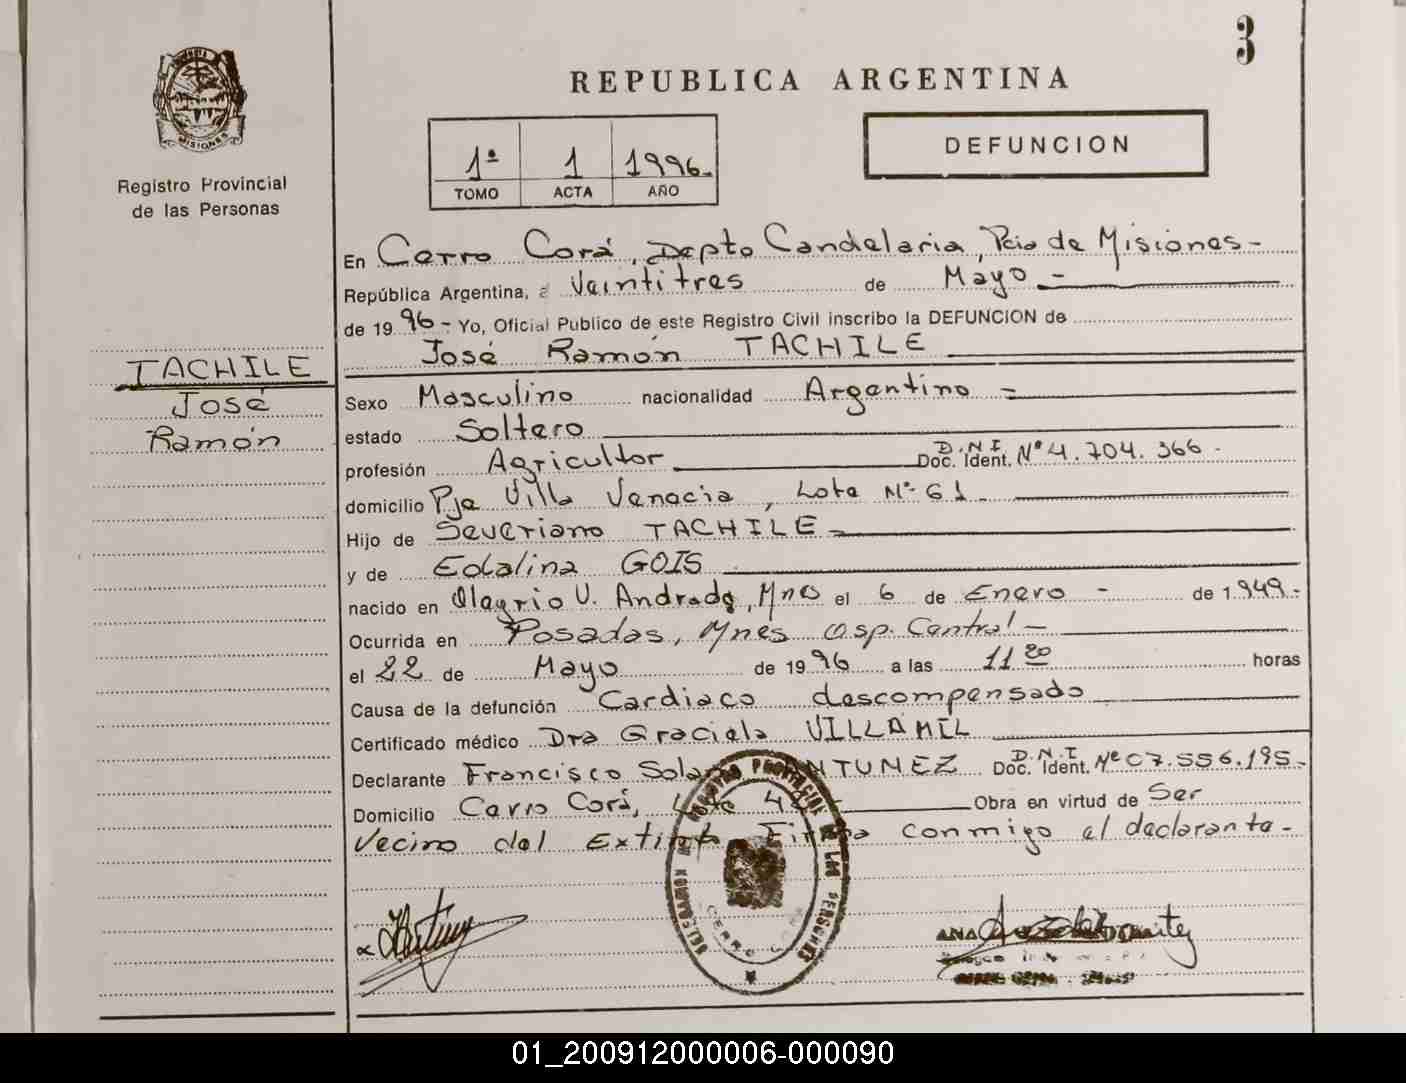 3
REPUBLICA ARGENTINA
MISIONES
Registro Provincial
de las Personas
1ª 1 1996.
TOMO ACTA AÑO
DEFUNCION
En Cerro Corá, Depto Candelaria, Pcia de Misiones-
República Argentina, a Veintitres de Mayo -
de 1996- Yo, Oficial Publico de este Registro Civil inscribo la DEFUNCION de
José Ramón TACHILE
TACHILE
José
Ramón
Sexo Masculino nacionalidad Argentino -
estado Soltero
profesión Agricultor D.N.I. Doc. Ident. Nº 4.704.366.
domicilio Pje Villa Venecia, Lote Nº 61
Hijo de Severiano TACHILE
y de Edalina GOIS
nacido en Olegrio V. Andrade, Mnes el 6 de Enero - de 1.949.-
Ocurrida en Posadas, Mnes Osp. Central-
el 22 de Mayo de 1996 a las 11 20 horas
Causa de la defunción Cardiaco descompensado
Certificado médico Dra Graciela VILLAMIL
Declarante Francisco Solano ANTUNEZ D.N.I. Doc. Ident. Nº 07.556.195-
Domicilio Cerro Corá, Lote Obra en virtud de Ser
Vecino del Extinto Firma conmigo el declarante-
REGISTRO PROVINCIAL DE LAS PERSONAS
CERRO CORA
ANA
01_200912000006-000090